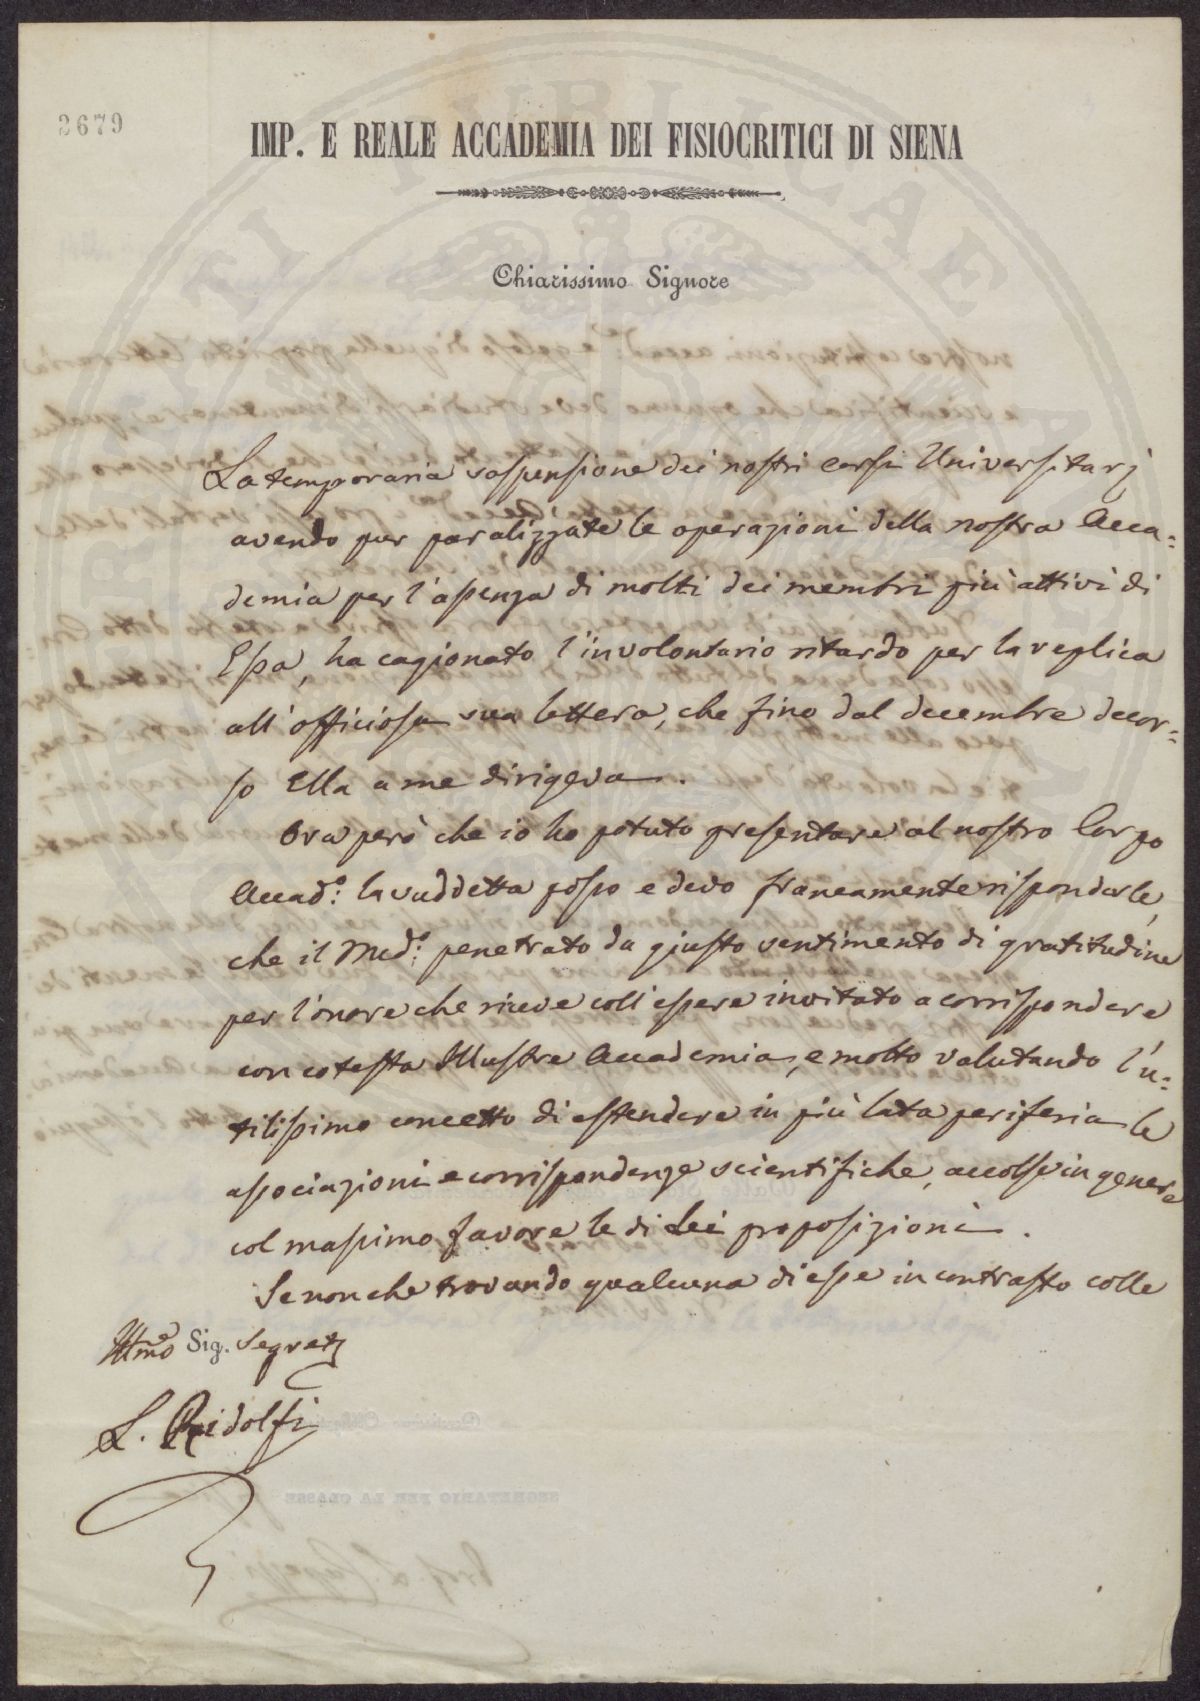 2679
IMP. E REALE ACCADEMIA DEI FISIOCRITICI DI SIENA
Chiarissimo Signore
La temporaria sospensione dei nostri corsi Universitarj
avendo pur paralizzate le operazioni della nostra Acca=
demia per l'assenza di molti dei membri più attivi di
Essa, ha cagionato l'involontario ritardo per la replica
all'officiosa sua lettera, che fino dal decembre decor=
so Ella a me dirigeva.
Ora però che io ho potuto presentare al nostro Corpo
Accad.o la suddetta posso e devo francamente risponderle,
che il Med.o penetrato da giusto sentimento di gratitudine
per l'onore che riceve coll'essere invitato a corrispondere
con cotesta Illustre Accademia, e molto valutando l'u=
tilissimo concetto di estendere in più lata periferia le
associazioni e corrispondenze scientifiche, accolse in genere
col massimo favore le di Lei proposizioni.
Se non che trovando qualcuna di esse in contrasto colle
Illmo Sig. Segret
L. Ridolfi